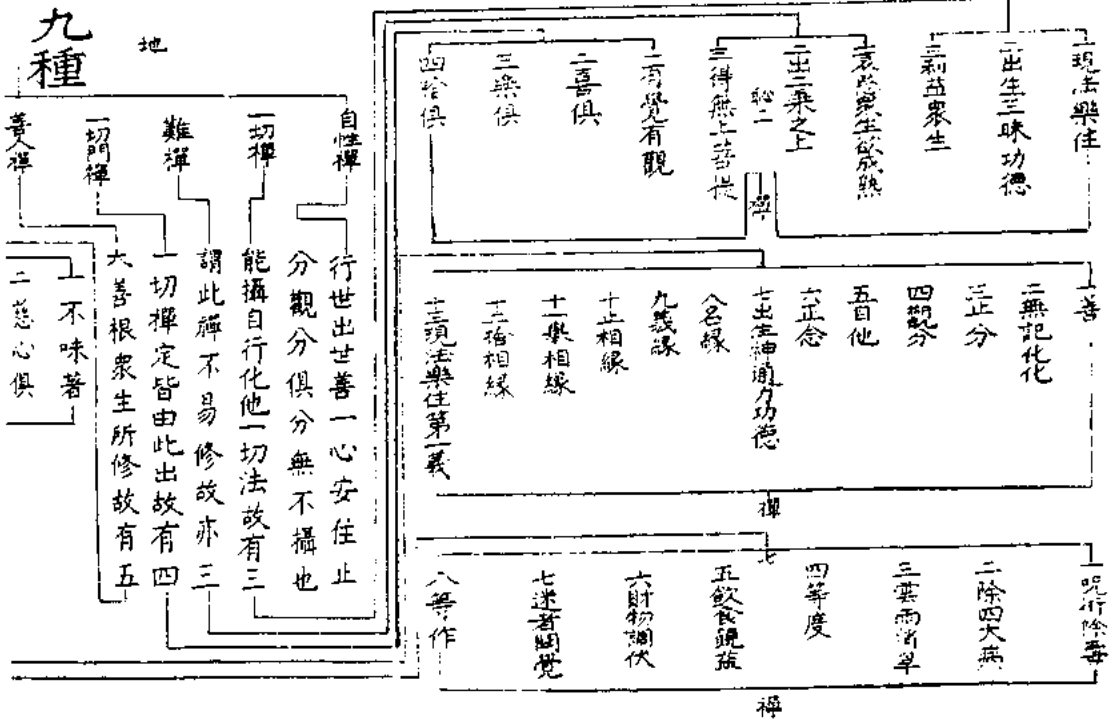 一現法樂住
二出生三昧功德
三利益衆生
一哀愍衆生欲成熟
二出二乘之上
三得無上菩提
一有覺有觀
二喜俱
三樂俱
四捨俱
禪
一善
二無記化化
三止分
四觀分
五自他
六正念
七出生神通力功德
八名緣
九義緣
十止相緣
十一舉相緣
十二捨相緣
十三現法樂住第一義
禪
一呪術除毒
二除四大病
三雲雨消旱
四等度
五飲食饒益
六財物調伏
七迷者開覺
八等作
禪
地
九種
自性禪
一切禪
難禪
一切門禪
善人禪
行世出世善一心安住止
分觀分俱分無不攝也
能攝自行化他一切法故有三
謂此禪不易修故亦三
一切禪定皆由此出故有四
大善根衆生所修故有五
一不味著
二慈心俱